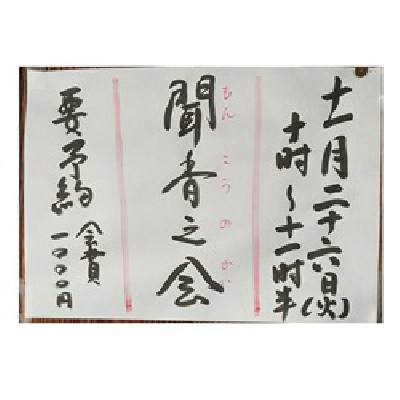 十一月二十六日(火)
十時~十一時半
もんこうのかい
聞香之会
要予約
会費
一〇〇〇円